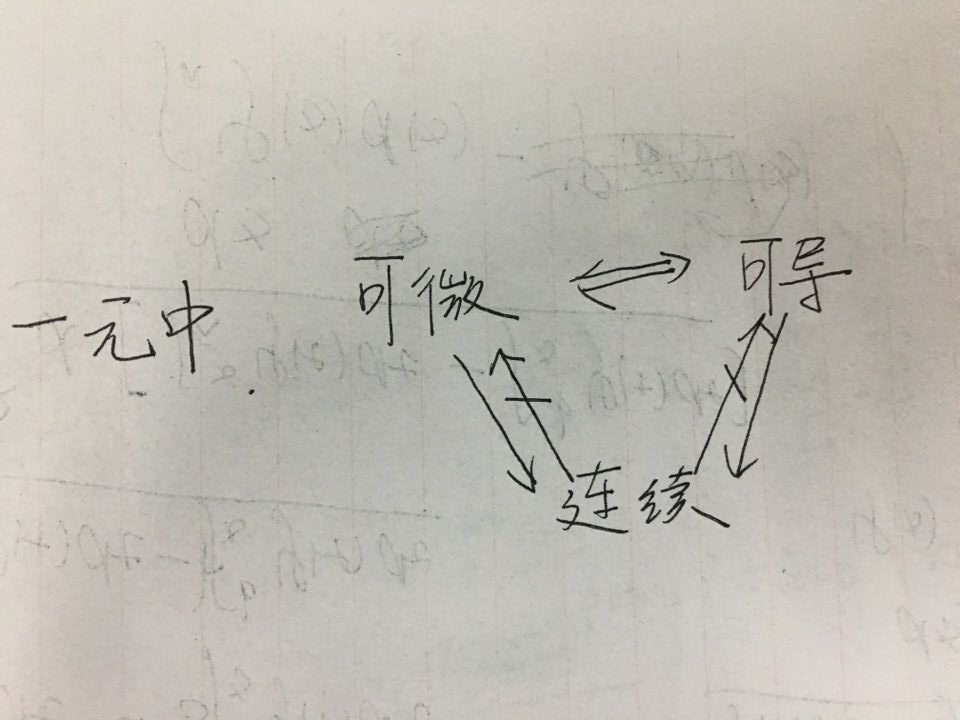 一元中
可微 ⇔ 可导
连续